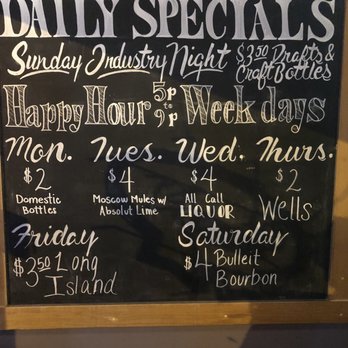 DAILY SPECIALS
Sunday Industry Night $3.50 Drafts &
Craft Bottles
Happy Hour 5p to 9p Weekdays
Mon. Tues. Wed. Thurs.
$2 $4 $4 $2
Domestic Bottles Moscow Mules w/ Absolut Lime All Call LIQUOR Wells
Friday Saturday
$3.50 Long Island $4 Bulleit Bourbon